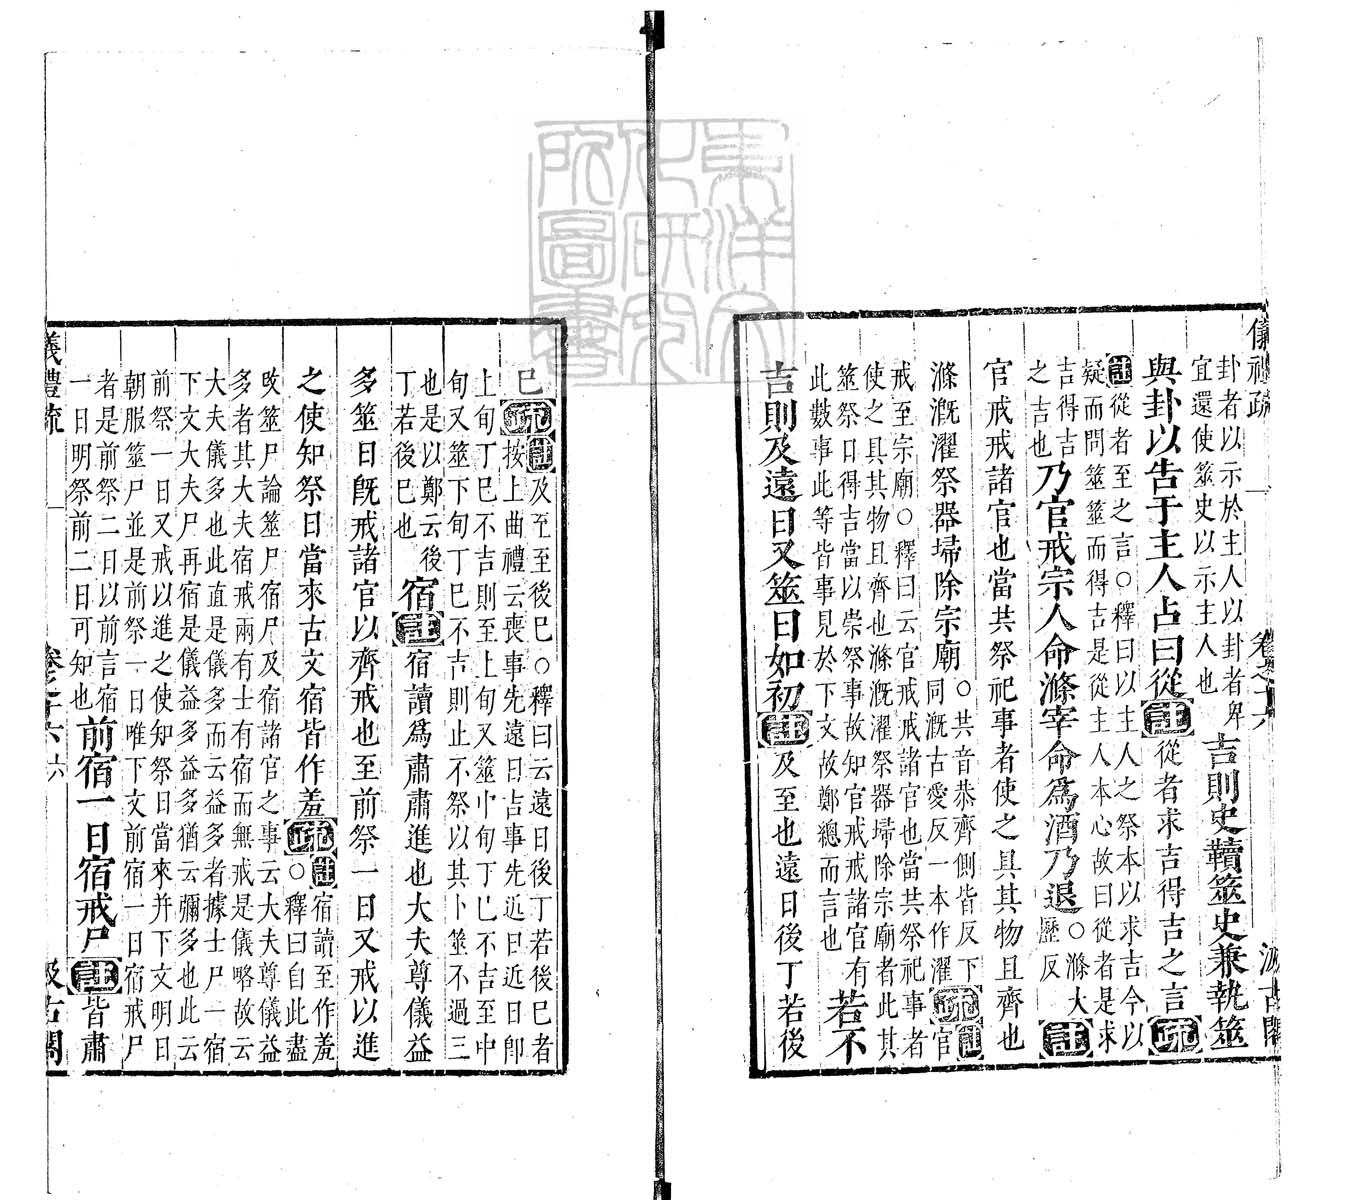 儀禮疏
卷之十六
汲古閣
卦者以示於主人以卦者卑
宜還使筮史以示主人也
吉則史韇筮史兼執筮
與卦以告于主人占曰從註從者求吉得吉之言疏
註從者至之言○釋曰以主人之祭本以求吉今以
疑而問筮筮而得吉是從主人本心故曰從者是求
吉得吉
之吉也
乃官戒宗人命滌宰命為酒乃退
○滌大
歷反
註
官戒戒諸官也當共祭祀事者使之具其物且齊也
滌溉濯祭器埽除宗廟
○共音恭齊側皆反下
同溉古愛反一本作濯
疏
註官
戒至宗廟○釋曰云官戒戒諸官也當共祭祀事者
使之具其物且齊也滌溉濯祭器埽除宗廟者此其
筮祭日得吉當以崇祭事故知官戒戒諸官有
此數事此等皆事見於下文故鄭總而言也
若不
吉則及遠日又筮日如初註及至也遠日後丁若後
巳疏
註及至至後巳○釋曰云遠日後丁若後巳者
按上曲禮云喪事先遠日吉事先近日近日卽
上旬丁巳不吉則至上旬又筮中旬丁巳不吉至中
旬又筮下旬丁巳不吉則止不祭以其卜筮不過三
也是以鄭云後
丁若後巳也
宿註宿讀爲肅肅進也大夫尊儀益
多筮日旣戒諸官以齊戒也至前祭一日又戒以進
之使知祭日當來古文宿皆作羞疏
註宿讀至作羞
○釋曰自此盡
攺筮尸論筮尸宿尸及宿諸官之事云大夫尊儀益
多者其大夫宿戒兩有士有宿而無戒是儀略故云
大夫儀多也此直是儀多而云益多者據士尸一宿
下文大夫尸再宿是儀益多益多猶云彌多也此云
前祭一日又戒以進之使知祭日當來并下文明日
朝服筮尸並是前祭一日唯下文前宿一日宿戒尸
者是前祭二日以前言宿
一日明祭前二日可知也
前宿一日宿戒尸註皆肅
儀禮疏
卷之十六
六
汲古閣
東洋文化研究所圖書